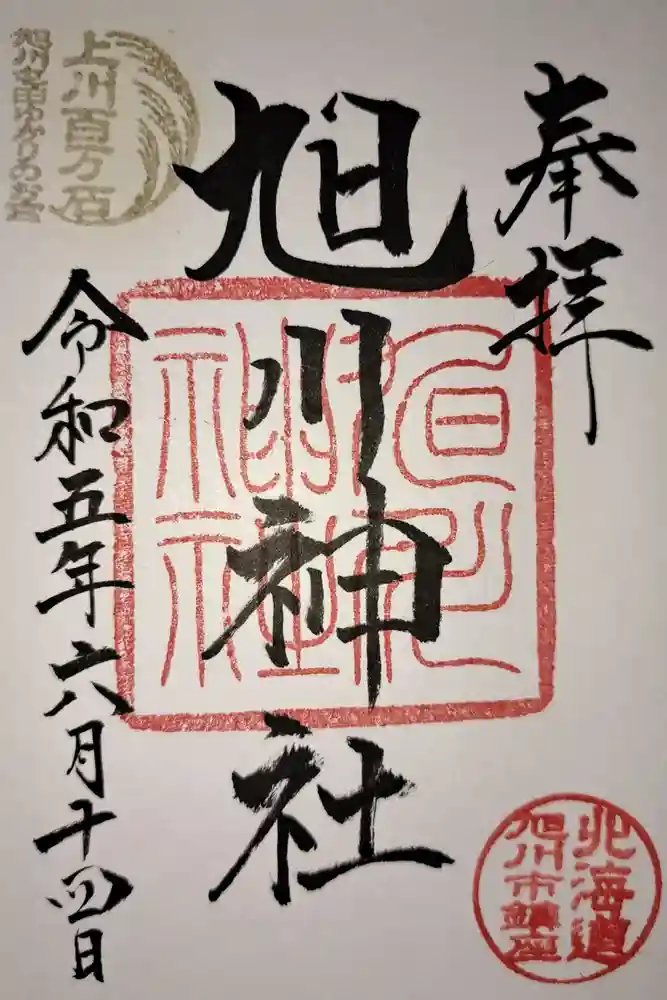 奉拝
旭川神社
令和五年六月十四日
上川百万石
旭川神社
北海道
旭川市鎮座